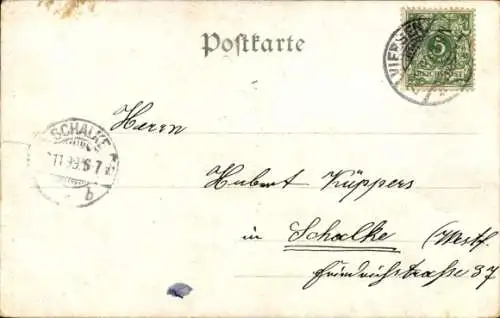 Postkarte
VIERSEN
5
SCHALKE
11.99.6-7
b
Herrn
Hubert Küppers
in Schalke (Westf.
Friedrichstraße 37